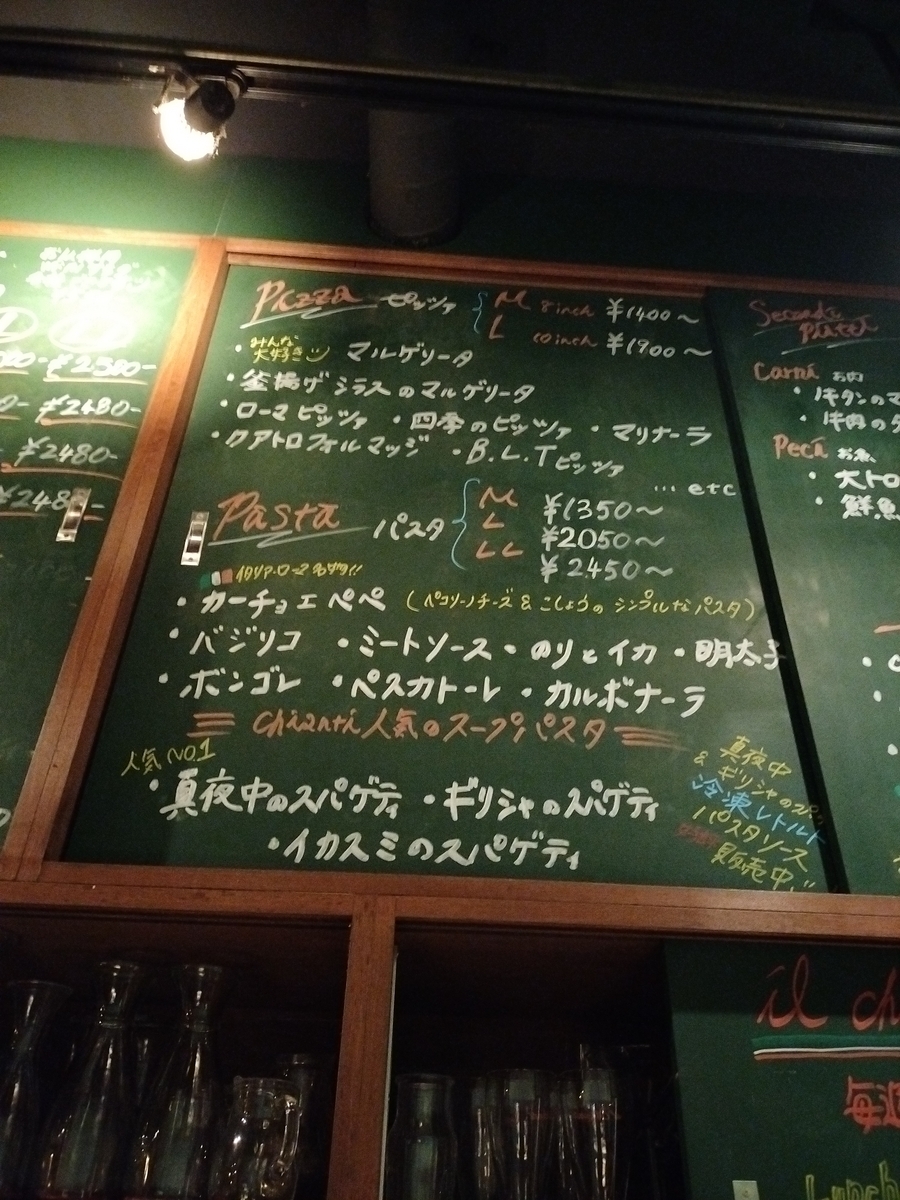 ¥2580-
¥2480-
¥2480-
¥248
Pizza ピッツァ
M 8inch ¥1400〜
L 10inch ¥1900〜
・みんな大好き マルゲリータ
・釜揚げシラスのマルゲリータ
・ローマピッツァ ・四季のピッツァ ・マリナーラ
・クアトロフォルマッジ ・B.L.Tピッツァ
…etc
Pasta パスタ
M ¥1350〜
L ¥2050〜
LL ¥2450〜
・カーチョエペペ (ペコリーノチーズ&こしょうのシンプルなパスタ)
・バジリコ ・ミートソース ・のりとイカ ・明太子
・ボンゴレ ・ペスカトーレ ・カルボナーラ
Chianti人気のスープパスタ
人気NO1
・真夜中のスパゲティ ・ギリシャのスパゲティ
・イカスミのスパゲティ
真夜中
&ギリシャのスパ
冷凍レトルト
パスタソース
販売中!!
Secondi
Piatti
Carni お肉
・牛タンのマ
・牛肉のタ
Peci お魚
・大トロ
・鮮魚
il ch
毎週
Lunch